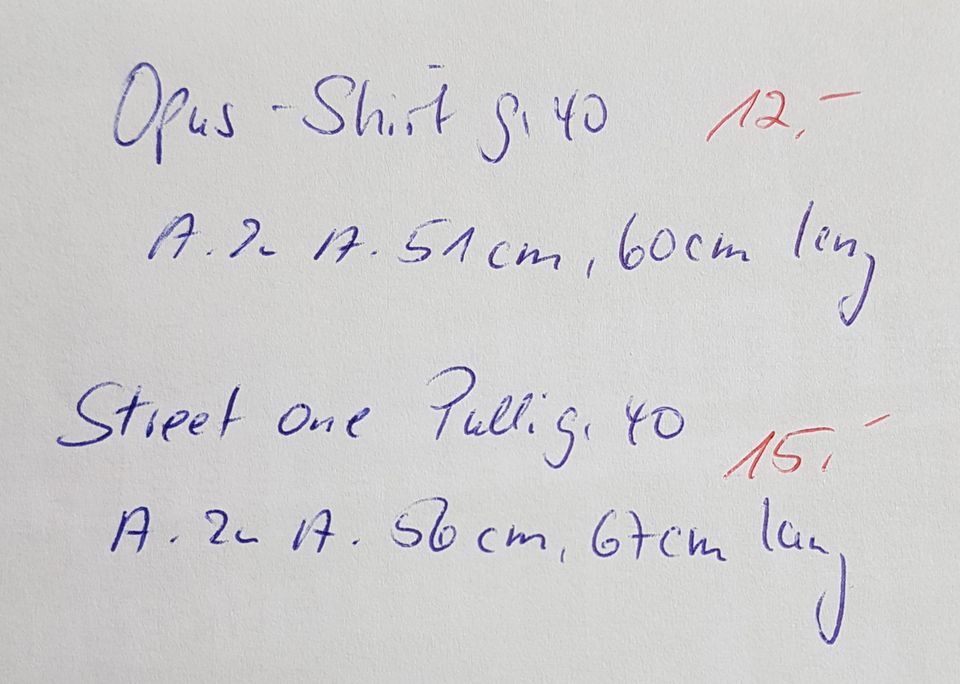 Opus - Shirt g. 40 12,-
A. zu A. 51cm, 60cm lang
Street one Pulli g. 40 15,-
A. zu A. 56cm, 67cm lang